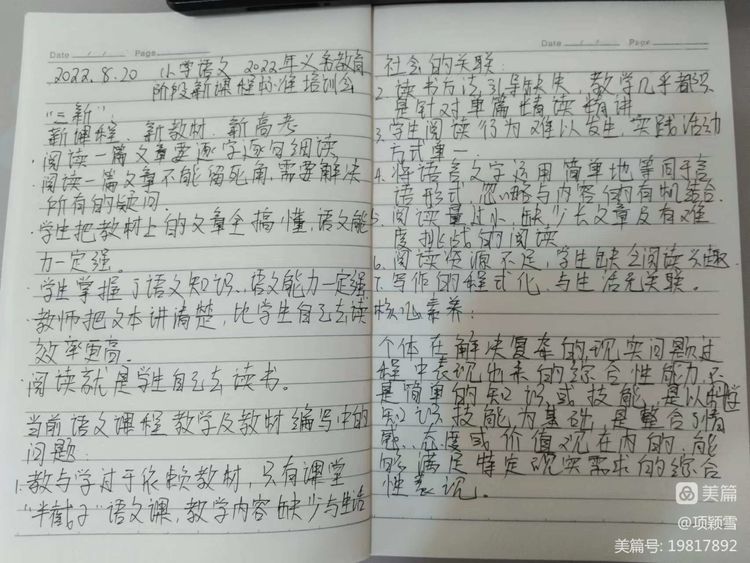 Date / / Page
2022.8.20 小学语文 2022年义务教育
阶段新课程标准培训会
"三新"
新课程、新教材、新高考
·阅读一篇文章要逐字逐句细读
·阅读一篇文章不能留死角,需要解决
所有的疑问.
·学生把教材上的文章全搞懂,语文能
力一定强。
·学生掌握了语文知识、语文能力一定强
·教师把文本讲清楚,比学生自己去读
效率更高。
·阅读就是学生自己去读书。
当前语文课程教学及教材编写中的
问题:
1.教与学过于依赖教材,只有课堂
"半截子"语文课,教学内容缺少与生活
Date / / Page
社会的关联:
2 读书方法引导缺失,教学几乎都只
是针对单篇精读精讲
3.学生阅读行为难以发生,实践活动
方式单一.
4.将语言文字运用简单地等同于言
语形式,忽略与内容的有机结合.
5.阅读量过小,缺少长文章及有难
度挑战的阅读
6.阅读资源不足,学生缺乏阅读兴趣.
7.写作的程式化,与生活无关联。
核心素养:
个体在解决复杂的现实问题过
程中表现出来的综合性能力,不
是简单的知识或技能,是以学
知识技能为基础,是整合了情
感、态度或价值观在内的,能
够满足特定现实需求的综合
性表现。
美篇
@项颖雪
美篇号: 19817892